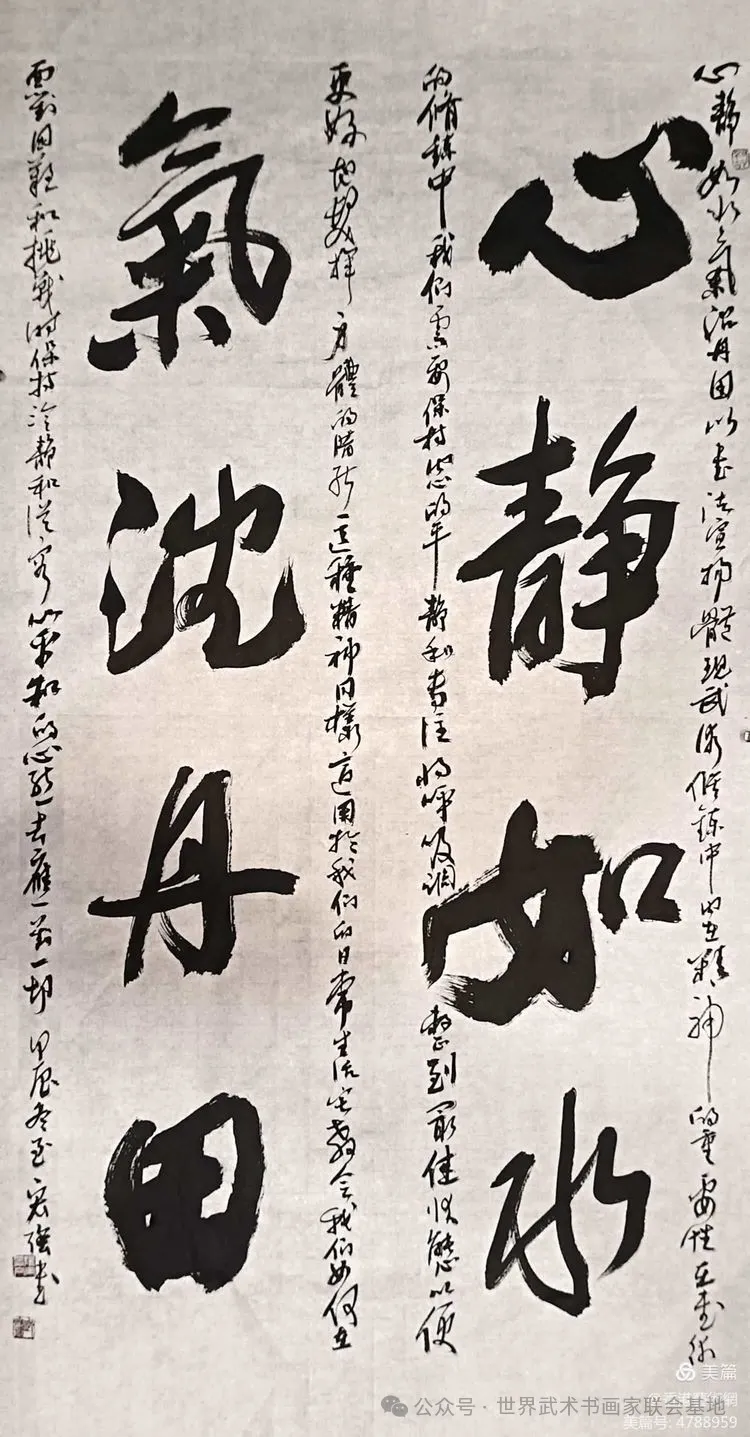 心静如水氣沈丹田以书法宣扬體現武術修鍊中内在精神的重要性在武術
心静如水
的脩鍊中我们需要保持心態的平静和专注将呼吸调整到最佳状態以便
更好地发挥身體的潜能这種精神同樣适用於我们的日常生活它教会我们如何在
氣沈丹田
面對困難和挑戰时保持冷静和從容以平和的心態去應对一切 甲辰冬至宏强书
美篇
公众号 · 世界武术书画家联会基地
美篇号: 4788959